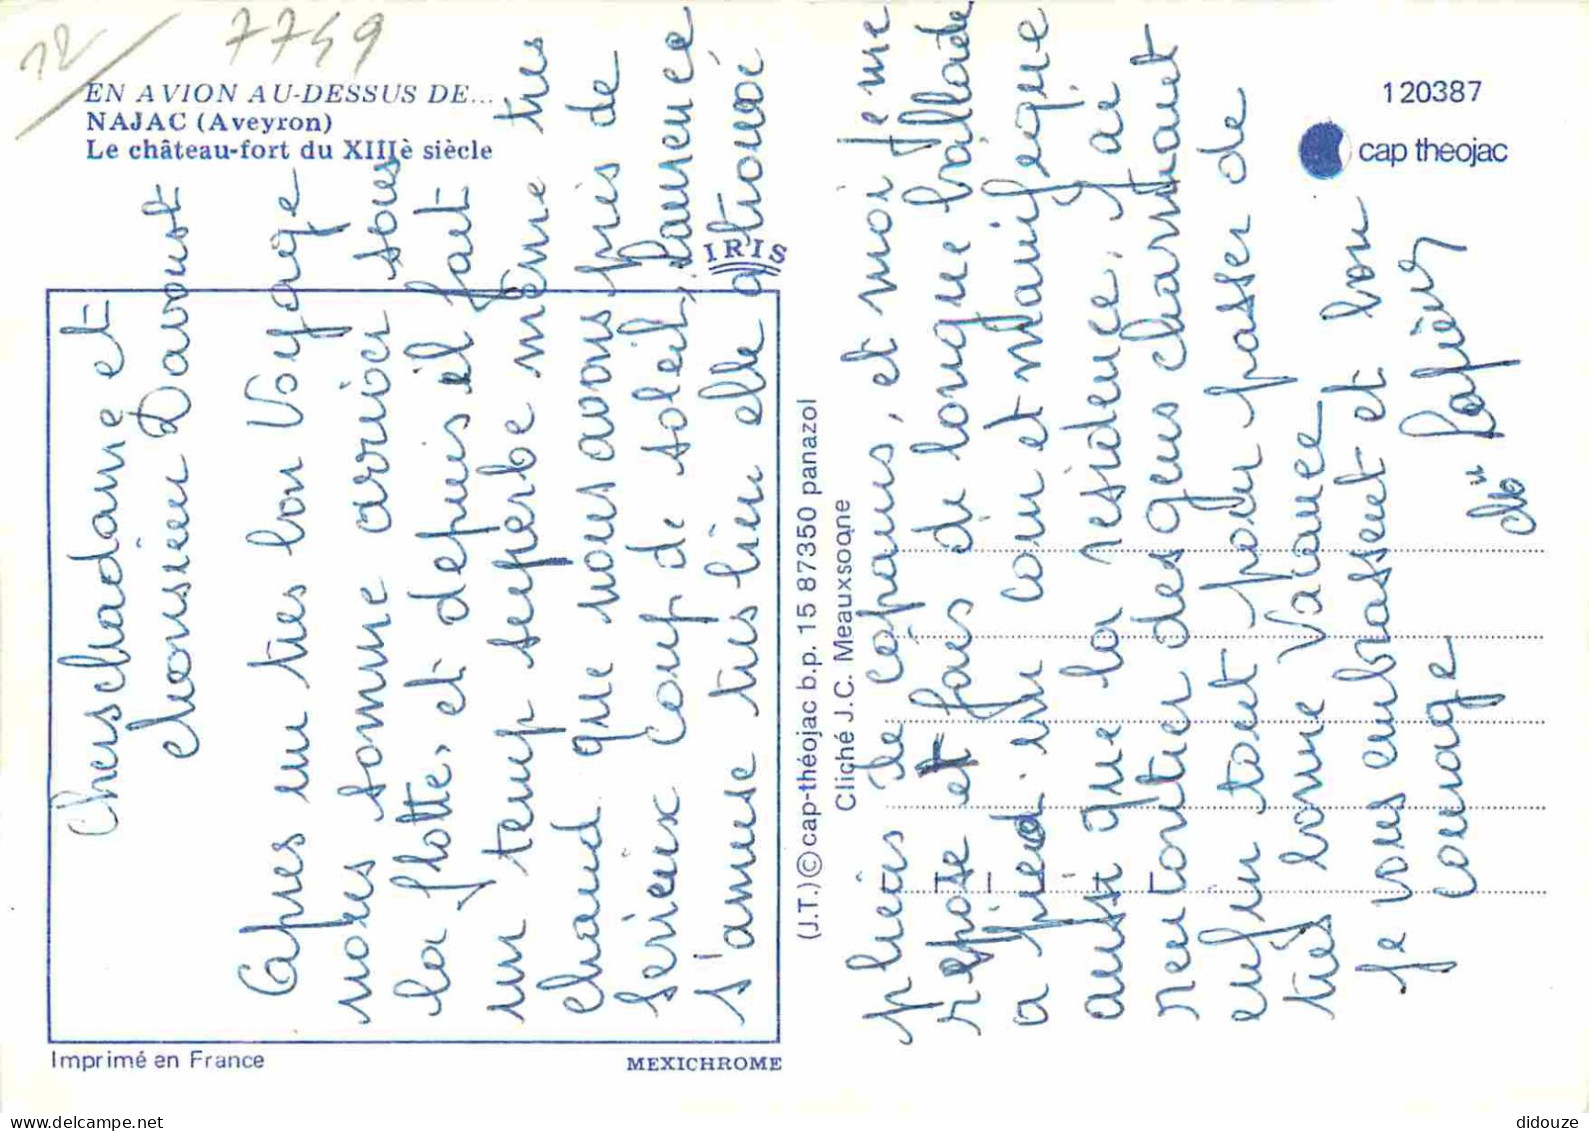 12
7749
EN AVION AU-DESSUS DE...
NAJAC (Aveyron)
Le château-fort du XIIIè siècle
120387
cap theojac
IRIS
Chers Madame et
Monsieur Davoust
Apres un tres bon Voyage
nous somme arriver sous
la flotte, et depuis il fait
un temp superbe même tres
chaud que nous avons pris de
serieux coup de soleil, Laurence
s'amuse tres bien elle a trouvé
plusieurs copains, et moi je me
repose et fais de longue ballade
a pied un coin et manifeque
aussi que la residence, j'ai
rencontrer des gens charmant
enfin tout pour passer de
très bonne Vacance
je vous embrassent et bon
courage
(J.T.) © cap-théojac b.p. 15 87350 panazol
Cliché J.C. Meauxsoone
Imprimé en France
MEXICHROME
didouze